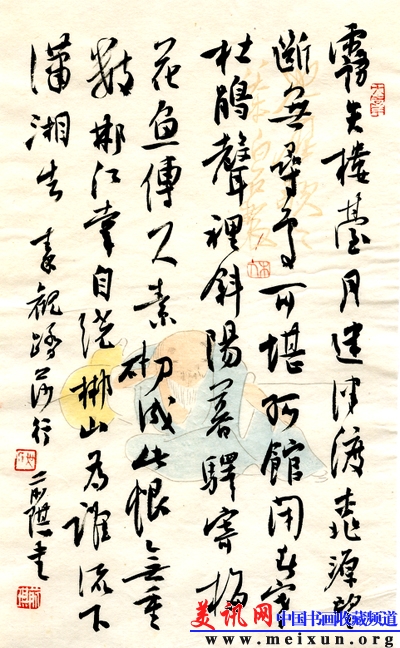 霧失樓臺月迷津渡桃源望
斷無尋處可堪孤館閉春寒
杜鵑聲裡斜陽暮驛寄梅
花魚傳尺素砌成此恨無重
數郴江幸自繞郴山為誰流下
瀟湘去 秦觀踏莎行
美讯网 中国书画收藏频道
www.meixun.org